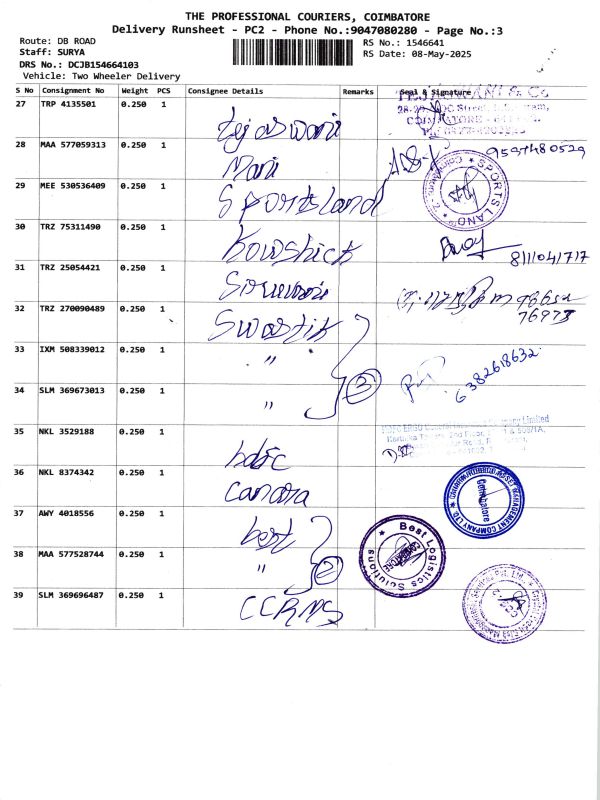 THE PROFESSIONAL COURIERS, COIMBATORE
Delivery Runsheet - PC2 - Phone No.:9047080280 - Page No.:3
Route: DB ROAD
Staff: SURYA
DRS No.: DCJB154664103
Vehicle: Two Wheeler Delivery
RS No.: 1546641
RS Date: 08-May-2025
S No Consignment No Weight PCS Consignee Details Remarks Seal & Signature
27 TRP 4135501 0.250 1 tejaswani
COIMBATORE
28 MAA 577059313 0.250 1 Mani 9597480529
29 MEE 530536409 0.250 1 Sportsland
SPORTS LAND
30 TRZ 75311490 0.250 1 Kowshick 8111041717
31 TRZ 25054421 0.250 1
32 TRZ 270090489 0.250 1 Swastik
76973
33 IXM 508339012 0.250 1 "
6382618632
34 SLM 369673013 0.250 1 " 3
35 NKL 3529188 0.250 1 hdfc
36 NKL 8374342 0.250 1 canara
Coimbatore
37 AWY 4018556 0.250 1 best
Best Logistics Solutions
38 MAA 577528744 0.250 1 " 2
39 SLM 369696487 0.250 1 CCRMS